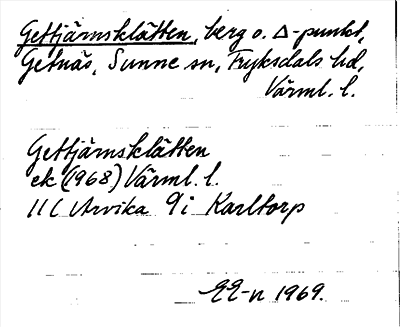 Gettjärnsklätten, berg o. Δ-punkt,
Getnäs, Sunne sn, Fryksdals hd,
Värml. l.
Gettjärnsklätten
ek (1968) Värml. l.
11C Arvika 9i Karltorp
EE-n 1969.